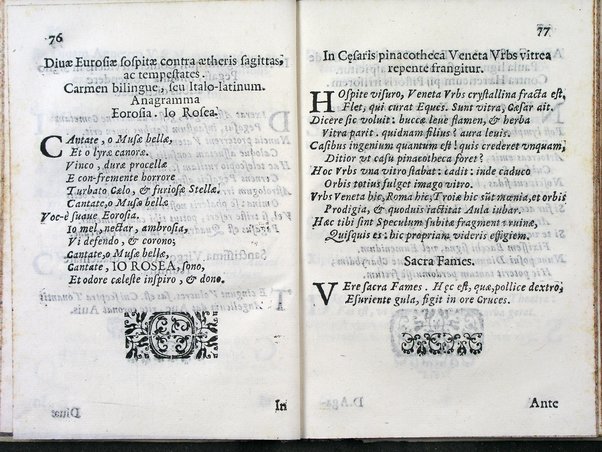 76
Diuæ Eurosiæ sospitæ contra ætheris sagittas,
ac tempestates.
Carmen bilingue, seu Italo-latinum.
Anagramma
Eorosia. Io Rosea.
CAntate, o Musæ bellæ,
Et o lyræ canoræ.
Vinco, duræ procellæ
E con-fremente horrore
Turbato Cælo, & furiosæ Stellæ.
Cantate, o Musæ bellæ
Voc-è suaue Eorosia.
Io mel, nectar, ambrosia,
Vi defendo, & corono;
Cantate, o Musæ bellæ,
Cantate, IO ROSEA, sono,
Et odore cæleste inspiro, & dono.
In
77
In Cęsaris pinacotheca Veneta Vrbs vitrea
repente frangitur.
HOspite visuro, Veneta Vrbs crystallina fracta est,
Flet, qui curat Eques. Sunt vitra, Cæsar ait.
Dicere sic voluit: buccæ leue flamen, & herba
Vitra parit. quidnam filius? aura leuis.
Casibus ingenium quantum est! quis crederet vnquam,
Ditior vt casu pinacotheca foret?
Hoc Vrbs vna vitro stabat: cadit: inde caduco
Orbis totius fulget imago vitro.
Vrbs Veneta hic, Roma hic, Troiæ hic sūt mœnia, et orbis
Prodigia, & quoduis iactitat Aula iubar.
Hæc tibi sint Speculum subitæ fragmenta ruinæ,
Quisquis es: hic propriam videris effigiem.
Sacra Fames.
VEre sacra Fames. Hęc est, quæ, pollice dextro,
Esuriente gula, figit in ore Cruces.
Ante